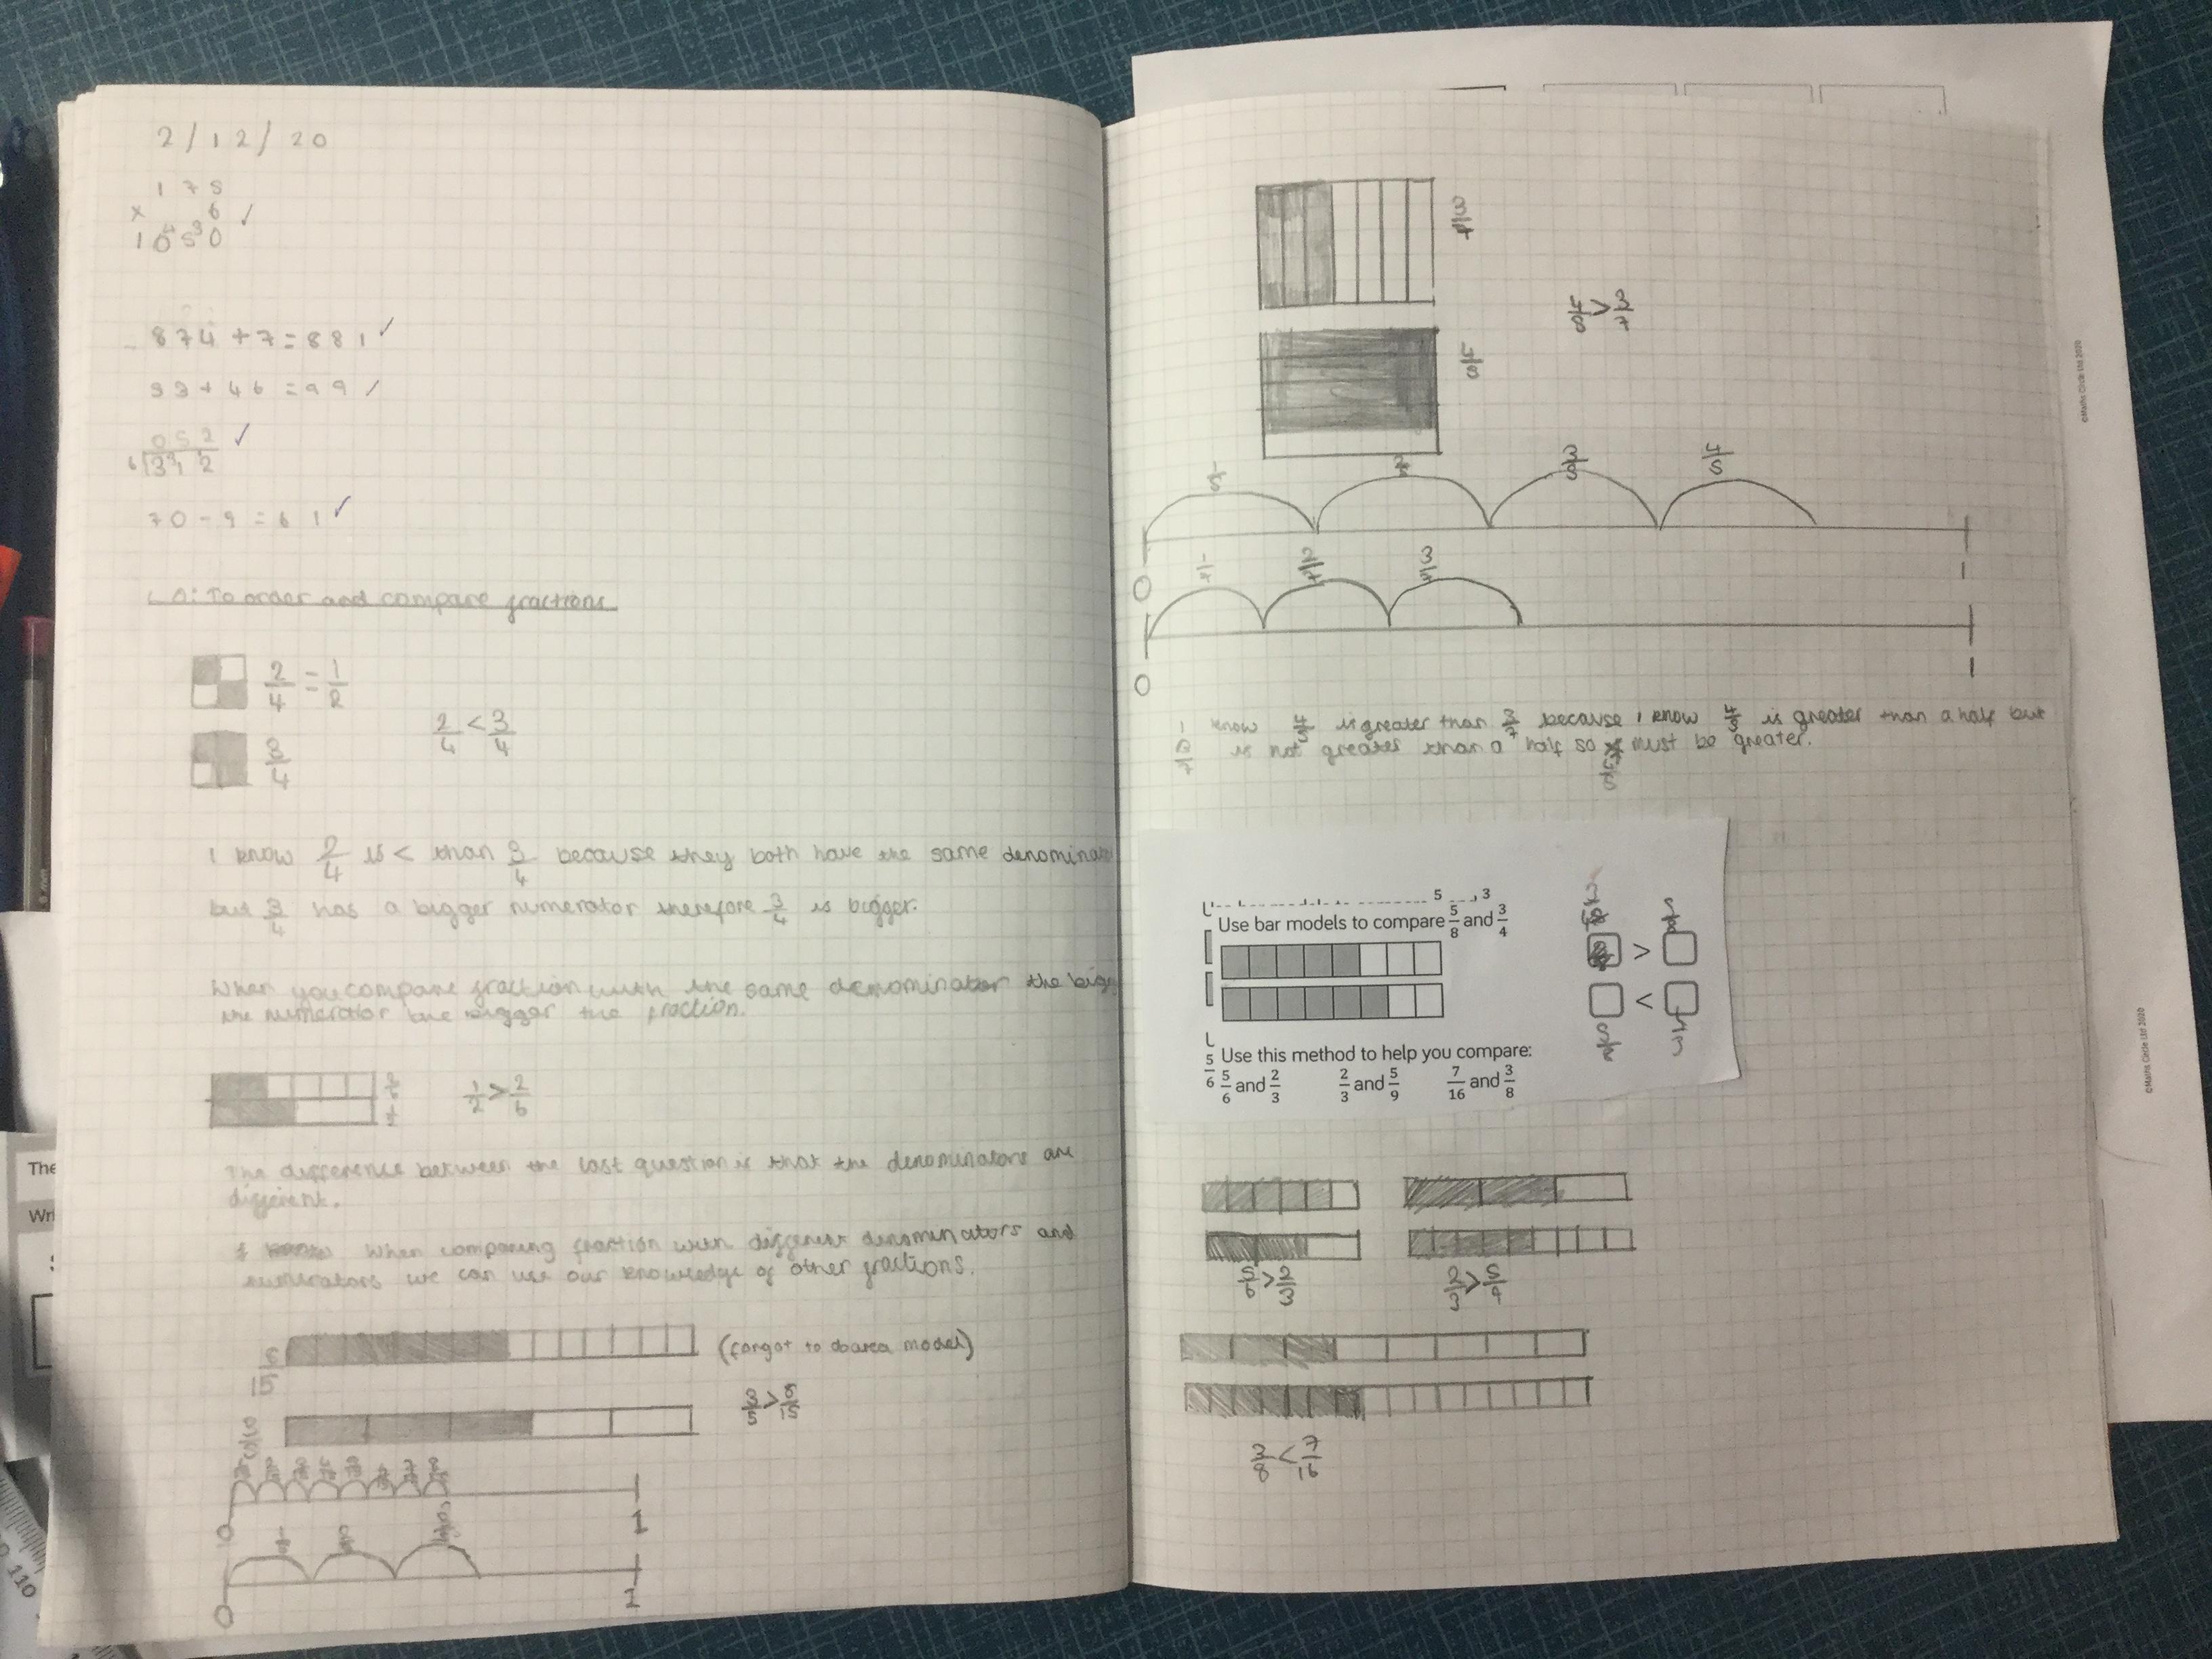 2/12/20
175
× 6 ✓
10⁴5³0
874+7=881 ✓
53+46=99 ✓
052 ✓
6)33¹12
70-9=61 ✓
LO: To order and compare fractions
2/4 = 1/2
2/4 < 3/4
3/4
I know 2/4 is < than 3/4 because they both have the same denominator
but 3/4 has a bigger numerator therefore 3/4 is bigger.
When you compare fraction with the same denominator the bigger
the numerator the bigger the fraction.
1/2 > 2/6
The difference between the last question is that the denominators are
different.
When comparing fraction with different denominators and
numerators we can use our knowledge of other fractions.
8/15
(forgot to do area model)
3/5 > 8/15
3/5
0 1
0 1
3/7
4/5 > 3/7
4/5
1/5 2/5 3/5 4/5
0 1
1/7 2/7 3/7
0 1
I know 4/5 is greater than 3/7 because I know 4/5 is greater than a half but
3/7 is not greater than a half so 4/5 must be greater.
Use bar models to compare 5/8 and 3/4
3/4 > 5/8
5/8 < 3/4
Use this method to help you compare:
5/6 and 2/3 2/3 and 5/9 7/16 and 3/8
5/6 > 2/3 2/3 > 5/9
3/8 < 7/16
©Maths Circle Ltd 2020
©Maths Circle Ltd 2020
The
Wri
110